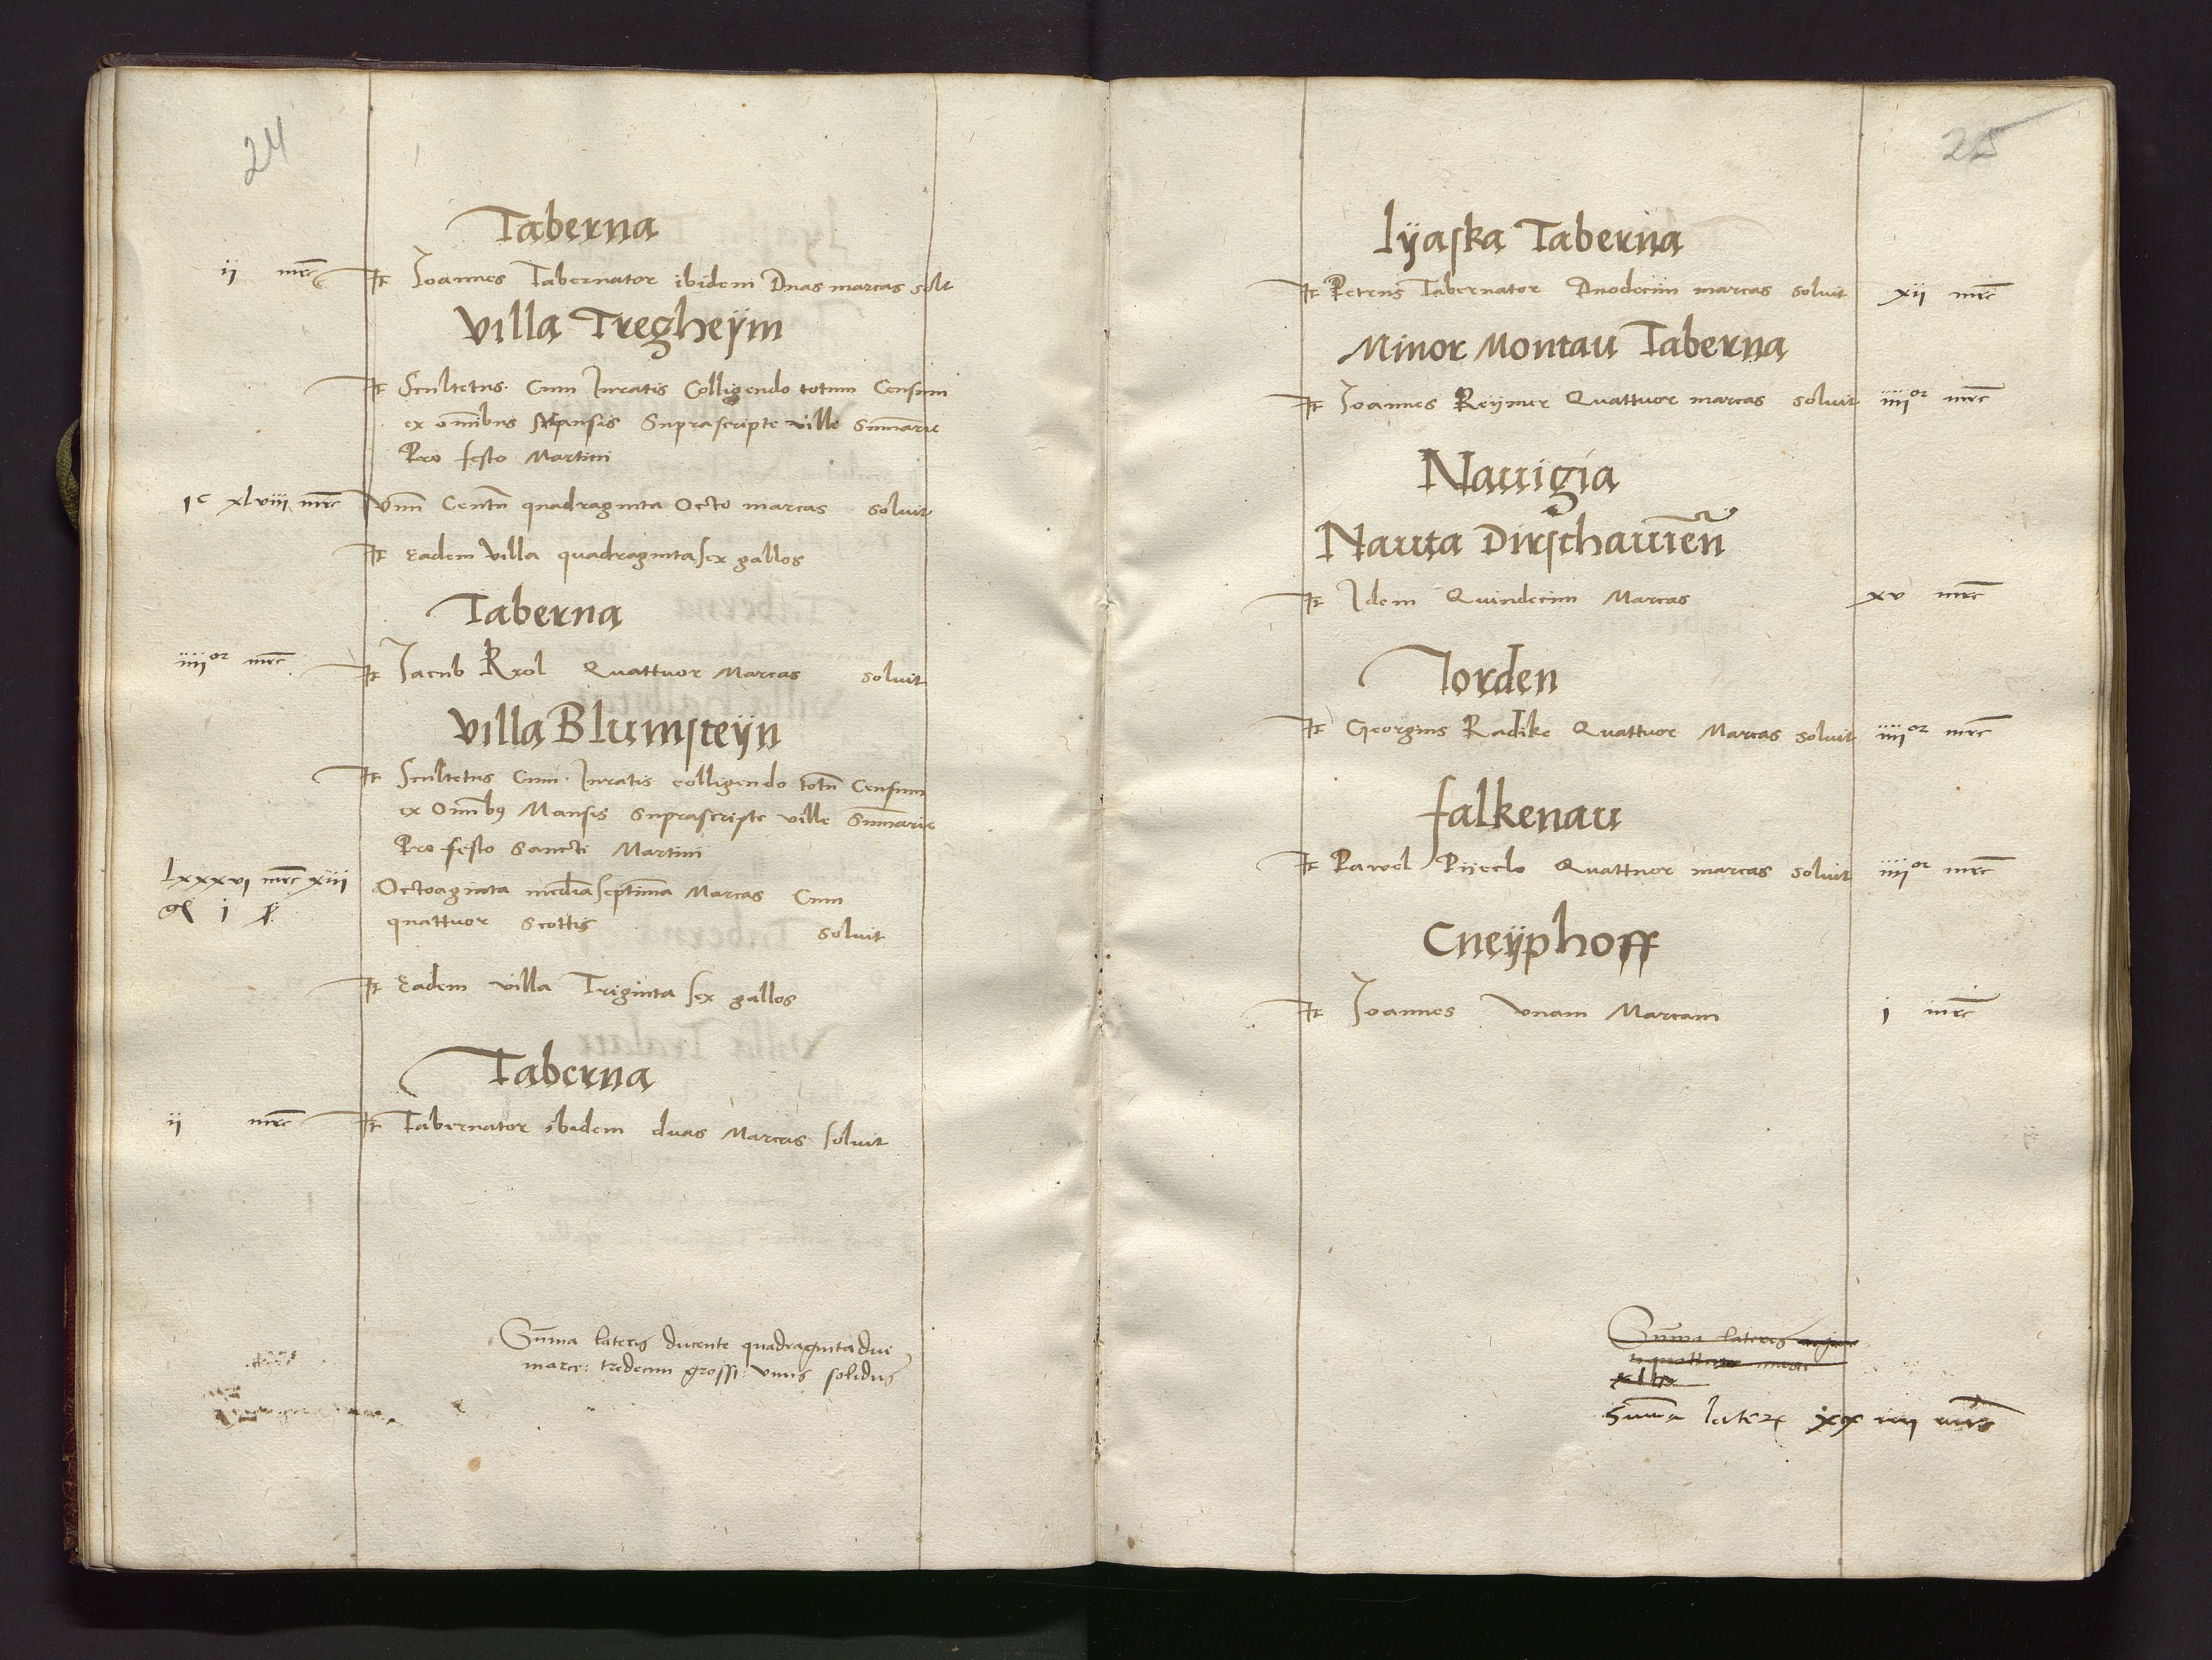 24
Taberna
ii mrc It Joannes Tabernator ibidem Duas marcas solt
Villa Tregheÿm
It Scultetus Cum Juratis Colligendo totum Censum
ex omībus Mansis Suprascripte ville Sūmarie
Pro festo Martini
Iᶜ xlviii mrc Vnū Centū quadraginta Octo marcas soluit
It Eadem Villa quadragintasex gallos
Taberna
iiiiᵒʳ mrc It Jacub Krol Quattuor Marcas soluit
Villa Blumsteÿn
It Scultetus Cum Juratis colligendo totū Censum
ex Omībꝯ Mansis Suprascripte ville Sūmarie
Pro festo Sancti Martini
lxxxvi mrc xiii Octoaginta mediāseptimā Marcas Cum
gl i ꝑ quattuor Scottis soluit
It Eadem villa Triginta sex gallos
Taberna
ii mrc It Tabernator ibidem duas Marcas soluit
Sūma lateris ducente quadragintadue
marce: tredecim grossi: vnus solidus
25
Lÿaska Taberna
It Petrus Tabernator Duodecim marcas soluit xii mrc
Minor Montau Taberna
It Joannes Reÿmer Quattuor marcas soluit iiiiᵒʳ mrc
Nauigia
Nauta Dirschauieñ
It Idem Quindecim Marcas xv mrc
Jorden
It Georgius Radike Quattuor Marcas soluit iiiiᵒʳ mrc
falkenau
It Pawel Pÿeclo Quattuor marcas soluit iiiiᵒʳ mrc
Cneÿphoff
It Joannes Vnam Marcam i mrc
Sūma lateris
Sum̄a laterꝭ xx iiii mrc